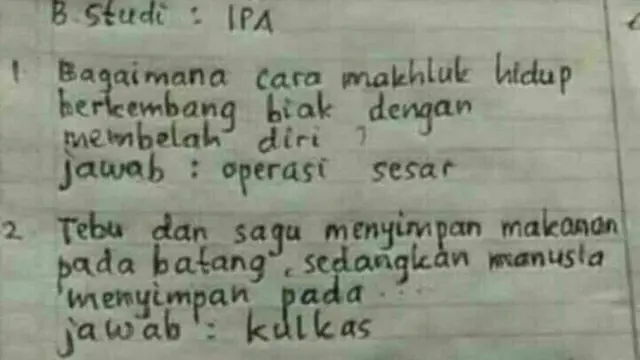 B. Studi : IPA
1 Bagaimana cara makhluk hidup
berkembang biak dengan
membelah diri ?
jawab : operasi sesar
2 Tebu dan sagu menyimpan makanan
pada batang, sedangkan manusia
menyimpan pada ...
jawab : kulkas